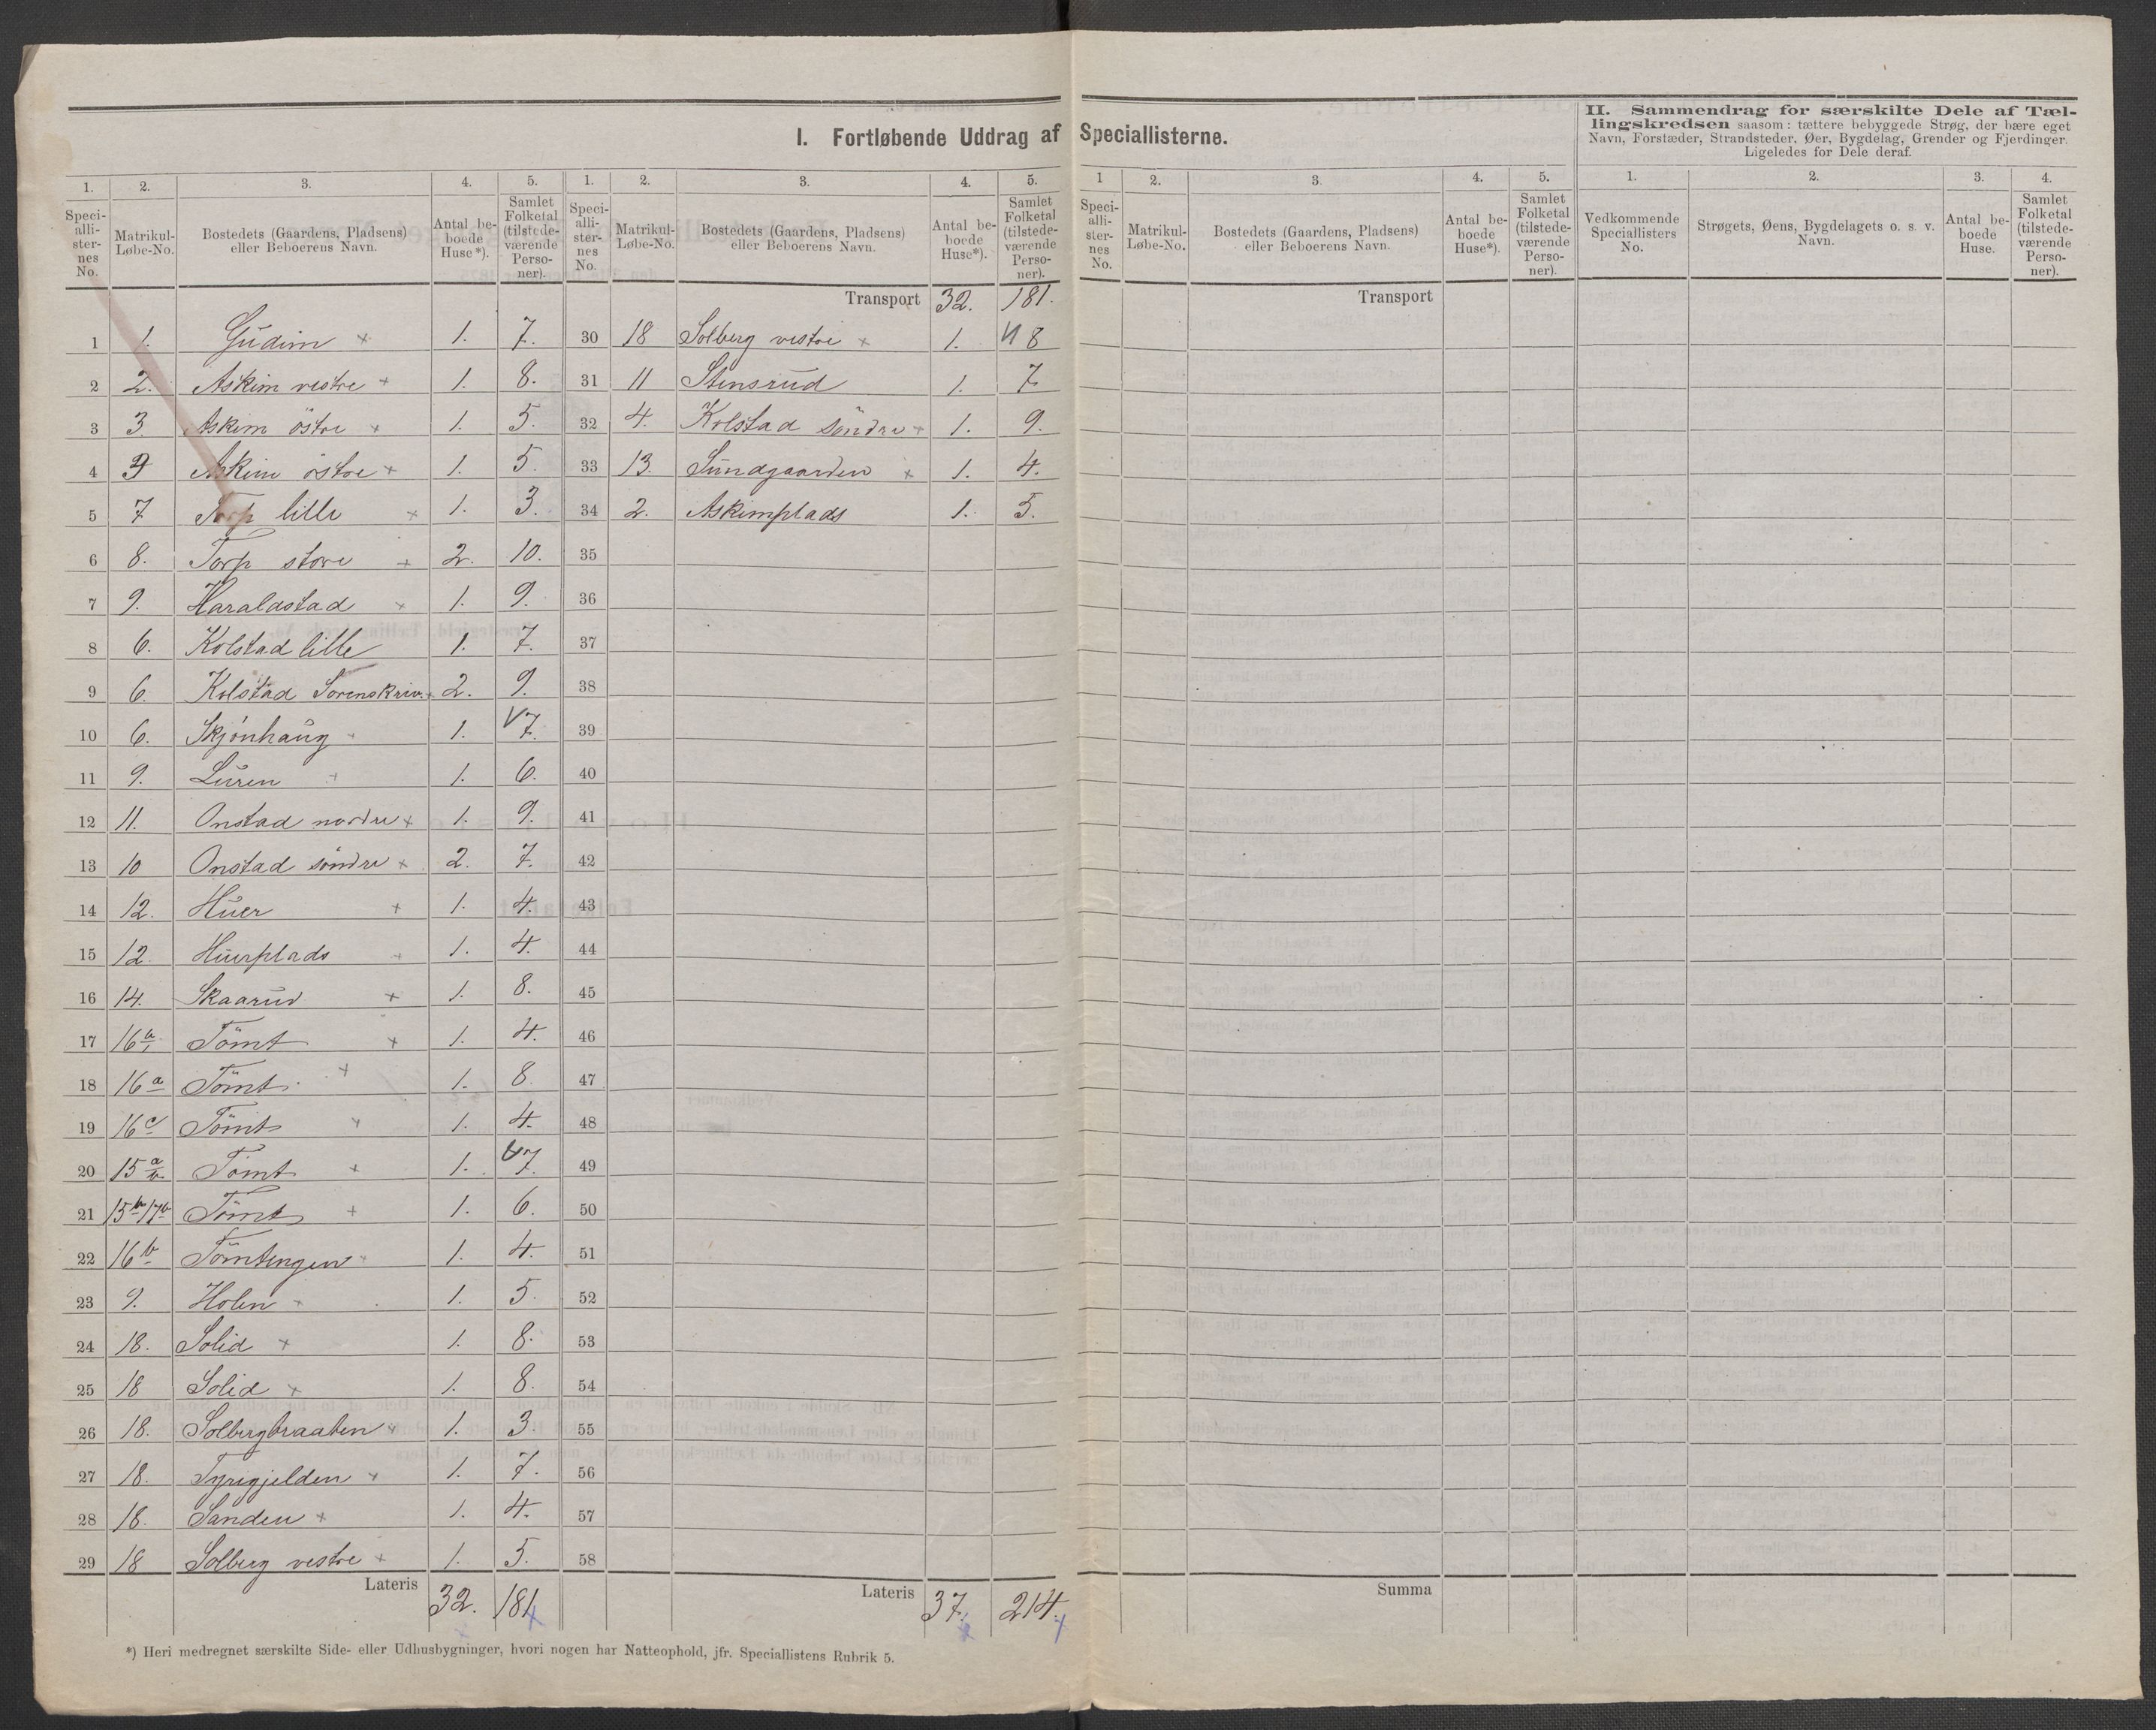 I. Fortløbende Uddrag af Speciallisterne.
II. Sammendrag for særskilte Dele af Tæl-
lingskredsen saasom: tættere bebyggede Strøg, der bære eget
Navn, Forstæder, Strandsteder, Øer, Bygdelag, Grender og Fjerdinger.
Ligeledes for Dele deraf.
1. 2. 3. 4. 5. 1. 2. 3. 4. 5. 1 2. 3. 4. 5. 1. 2. 3. 4.
Speci-
alli-
ster-
nes
No.
Matrikul-
Løbe-No.
Bostedets (Gaardens, Pladsens)
eller Beboerens Navn.
Antal be-
boede
Huse*).
Samlet
Folketal
(tilstede-
værende
Perso-
ner).
Speci-
alli-
ster-
nes
No.
Matrikul-
Løbe-No.
Bostedets (Gaardens, Pladsens)
eller Beboerens Navn.
Antal be-
boede
Huse*).
Samlet
Folketal
(tilstede-
værende
Perso-
ner).
Speci-
alli-
ster-
nes
No.
Matrikul-
Løbe-No.
Bostedets (Gaardens, Pladsens)
eller Beboerens Navn.
Antal be-
boede
Huse*).
Samlet
Folketal
(tilstede-
værende
Perso-
ner).
Vedkommende
Speciallisters
No.
Strøgets, Øens, Bygdelagets o. s. v.
Navn.
Antal be-
boede
Huse.
Samlet
Folketal
(tilstede-
værende
Perso-
ner).
1 1. Gudim × 1. 7.
2 2. Askim vestre × 1. 8.
3 3. Askim östre × 1. 5.
4 3 Askim östre × 1. 5.
5 7 Torp lille × 1. 3.
6 8. Torp store × 2. 10.
7 9. Haraldstad × 1. 9.
8 6. Kolstad lille 1. 7.
9 6. Kolstad Sorenskriv. × 2. 9.
10 6. Skjónhaug × 1. 7.
11 9. Luren × 1. 6.
12 11. Onstad nordre × 1. 9.
13 10 Onstad söndre × 2. 7.
14 12. Huer × 1. 4.
15 12. Huerplads × 1. 4.
16 14. Skaarud × 1. 8.
17 16 Tömt × 1. 4.
18 16a Tömt × 1. 8.
19 16c Tömt × 1. 4.
20 15 Tömt × 1. 7.
21 15 17b Tömt × 1. 6.
22 16b Tömtengen × 1. 4.
23 9. Holen × 1. 5.
24 18. Solid × 1. 8.
25 18 Solid × 1. 8.
26 18. Solbergbraaten × 1. 3.
27 18. Tyrigjelden × 1. 7.
28 18. Sanden × 1. 4.
29 18 Solberg vestre × 1. 5.
Lateris 32. 181
Transport 32. 181.
30 18 Solberg vestre × 1. 8
31 11 Stensrud 1. 7
32 4. Kolstad söndre × 1. 9.
33 13. Sundgaarden × 1. 4.
34 2. Askimplads 1. 5.
35
36
37
38
39
40
41
42
43
44
45
46
47
48
49
50
51
52
53
54
55
56
57
58
Lateris 37. 214.
Transport
Summa
*) Heri medregnet særskilte Side- eller Udhusbygninger, hvori nogen har Natteophold, jfr. Speciallistens Rubrik 5.